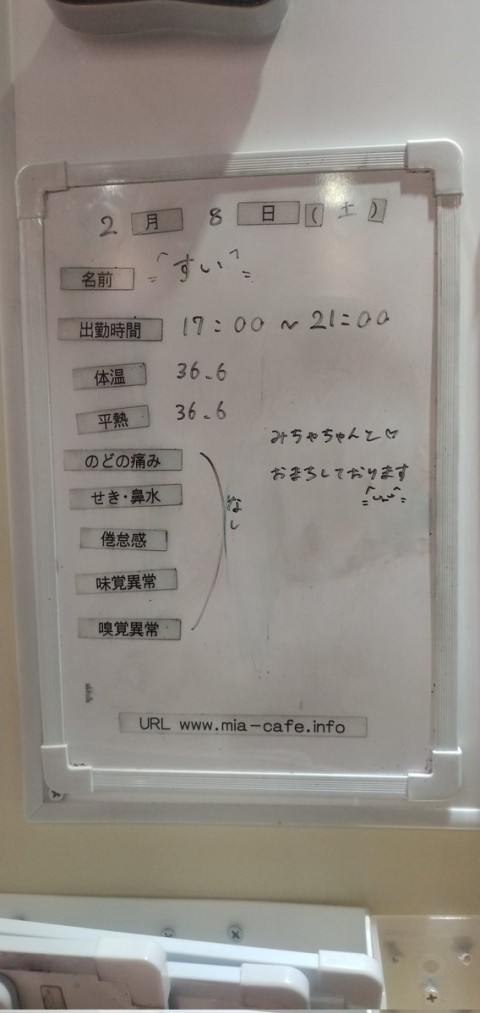 2月8日(土)
名前 すい
出勤時間 17:00 ~ 21:00
体温 36.6
平熱 36.6
みちゃちゃんと♡
おまちしております
のどの痛み
せき・鼻水
なし
倦怠感
味覚異常
嗅覚異常
URL www.mia-cafe.info